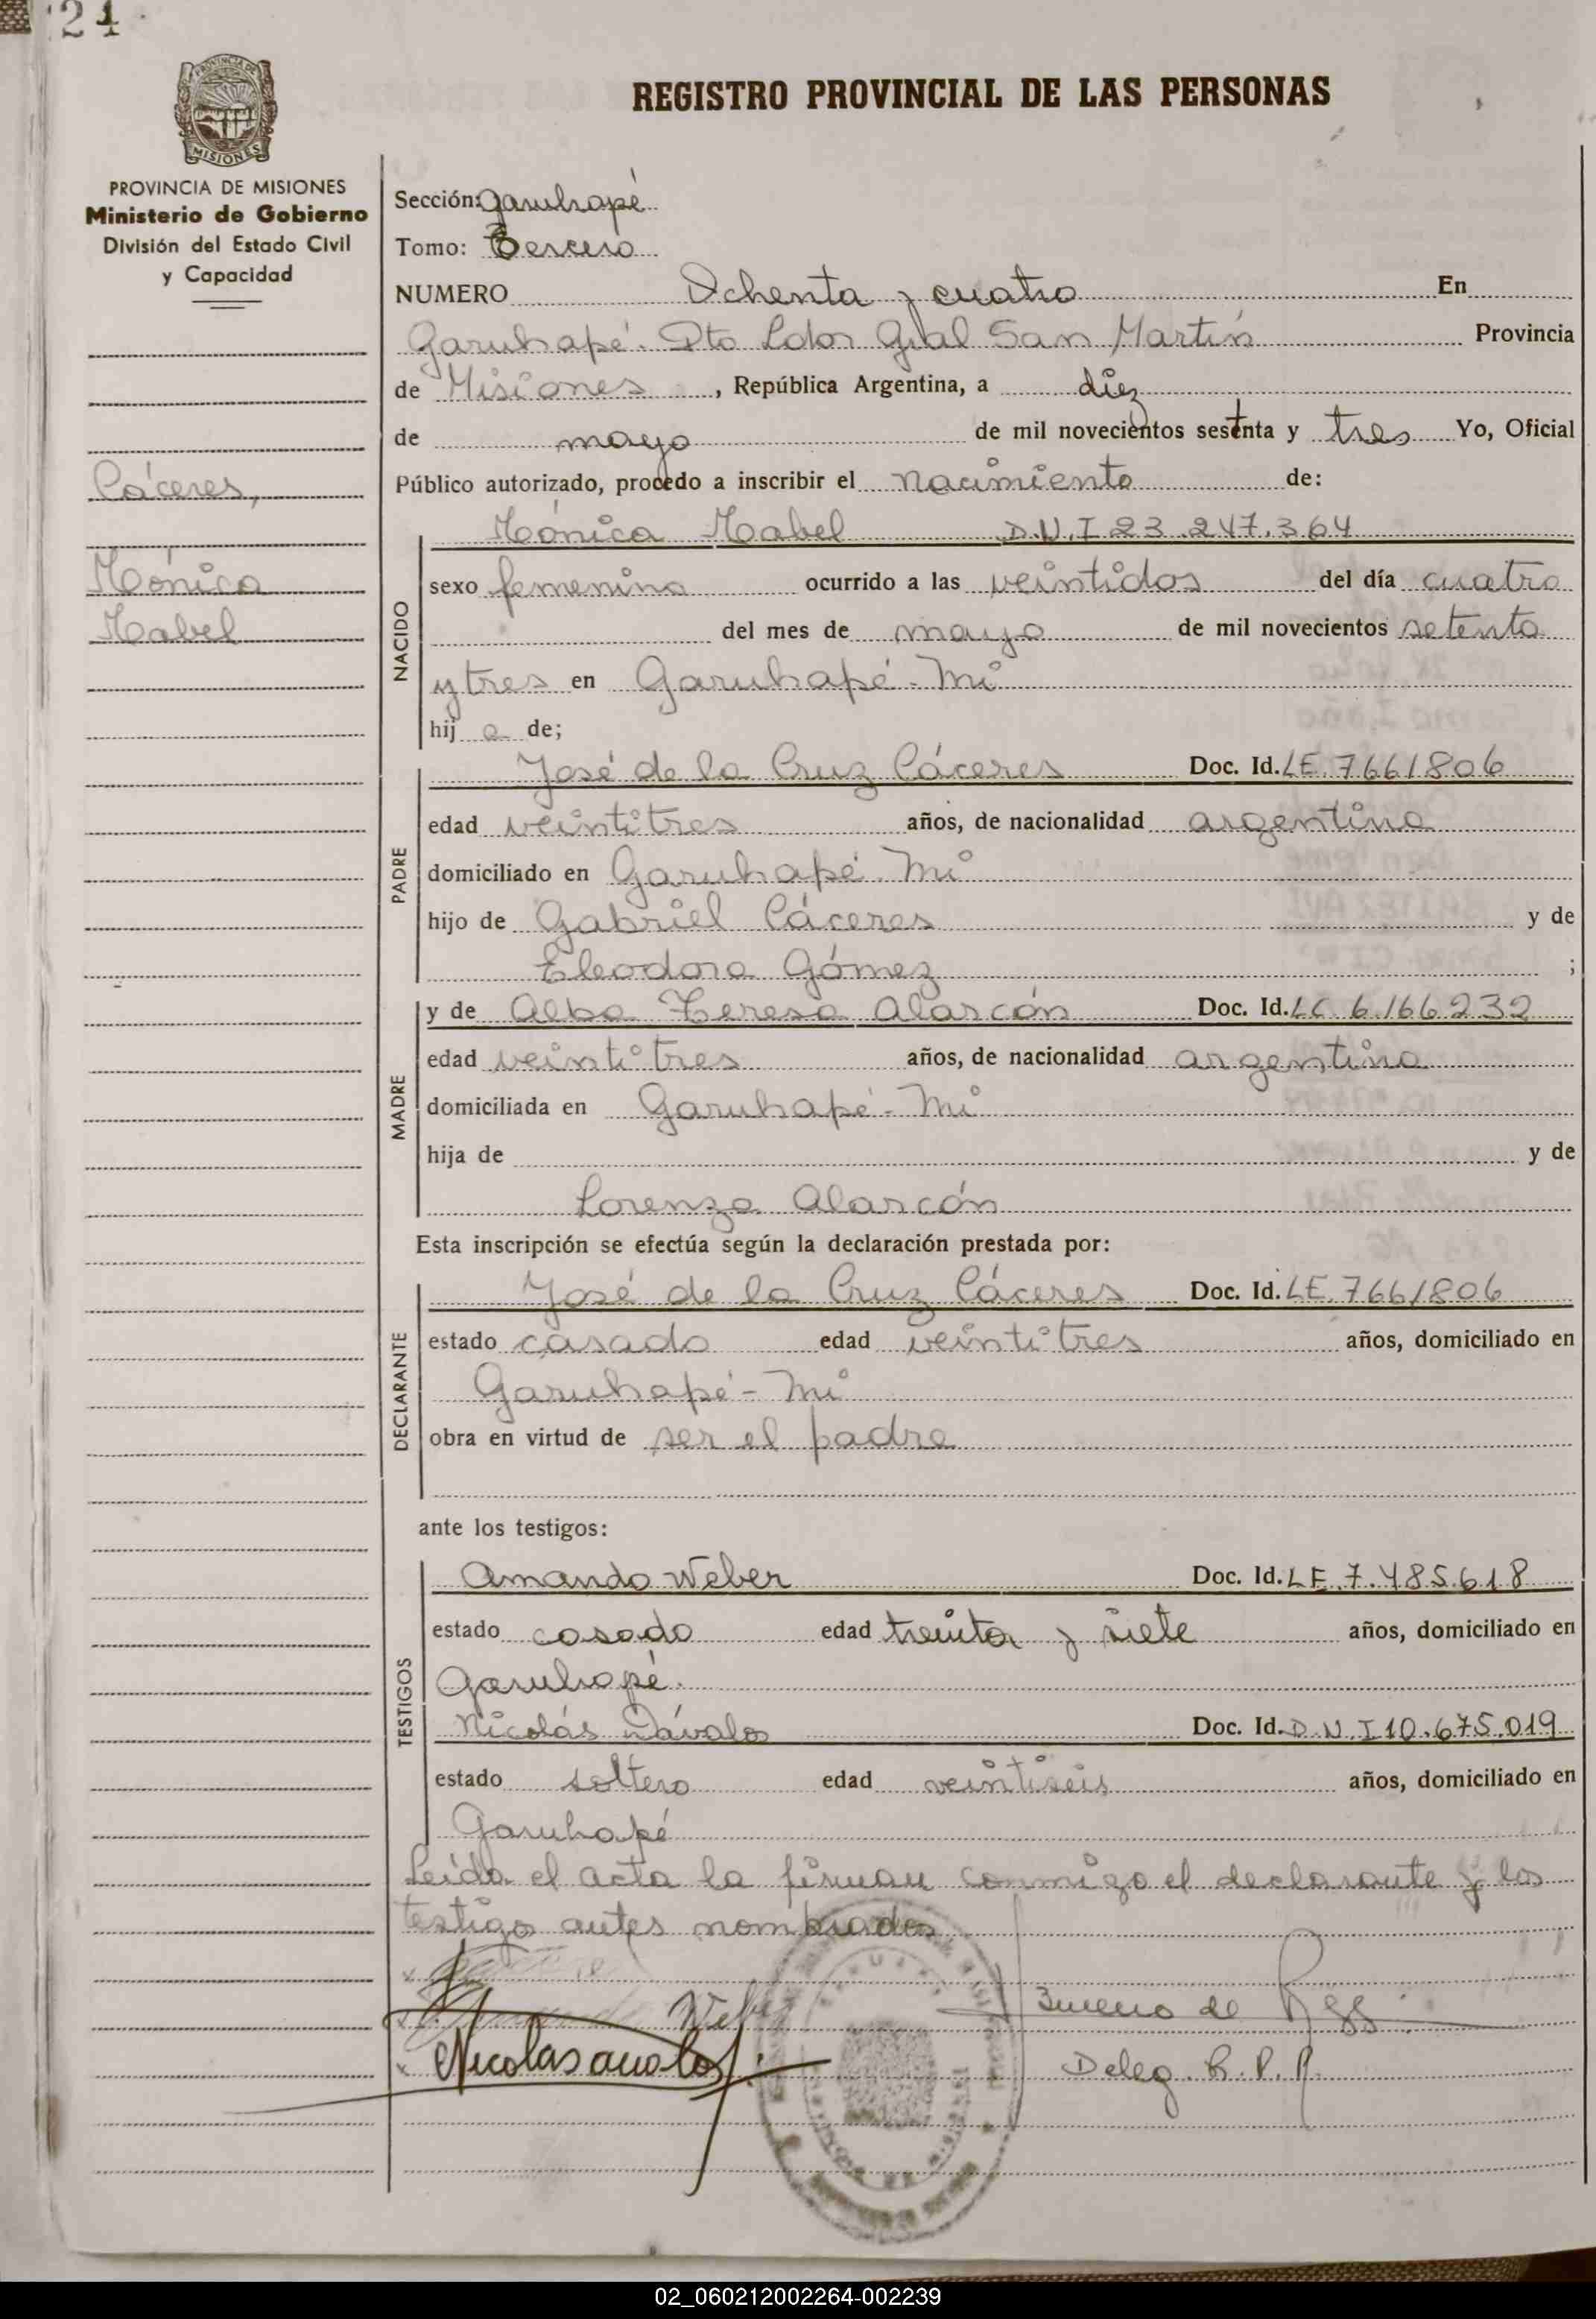 24
REGISTRO PROVINCIAL DE LAS PERSONAS
MISIONES
PROVINCIA DE MISIONES
Ministerio de Gobierno
División del Estado Civil
y Capacidad
Cáceres,
Mónica
Mabel
Sección: Garuhapé
Tomo: Tercero
NUMERO Ochenta y cuatro En
Garuhapé. Dto Ldor Gral San Martín Provincia
de Misiones, República Argentina, a diez
de mayo de mil novecientos setenta y tres Yo, Oficial
Público autorizado, procedo a inscribir el nacimiento de:
NACIDO
Mónica Mabel D.N.I 23.247.364
sexo femenino ocurrido a las veintidos del día cuatro
del mes de mayo de mil novecientos setenta
y tres en Garuhapé - Mi
hij a de;
PADRE
José de la Cruz Cáceres Doc. Id. LE. 7661806
edad veintitres años, de nacionalidad argentina
domiciliado en Garuhapé. Mi
hijo de Gabriel Cáceres y de
Eleodora Gómez ;
MADRE
y de Alba Teresa Alarcón Doc. Id. LC 6.166.232
edad veintitres años, de nacionalidad argentina
domiciliada en Garuhapé - Mi
hija de y de
Lorenza Alarcón
Esta inscripción se efectúa según la declaración prestada por:
DECLARANTE
José de la Cruz Cáceres Doc. Id. LE. 7661806
estado casado edad veintitres años, domiciliado en
Garuhapé - Mi
obra en virtud de ser el padre
ante los testigos:
TESTIGOS
Amando Weber Doc. Id. LE. 7.485.618
estado casado edad treinta y siete años, domiciliado en
Garuhapé.
Nicolás Dávalos Doc. Id. D.N.I 10.675.019
estado soltero edad veintiseis años, domiciliado en
Garuhapé
Leída el acta la firman conmigo el declarante y los
testigo antes nombrados
Weber
Nicolas
Deleg. R. P. P.
02_060212002264-002239